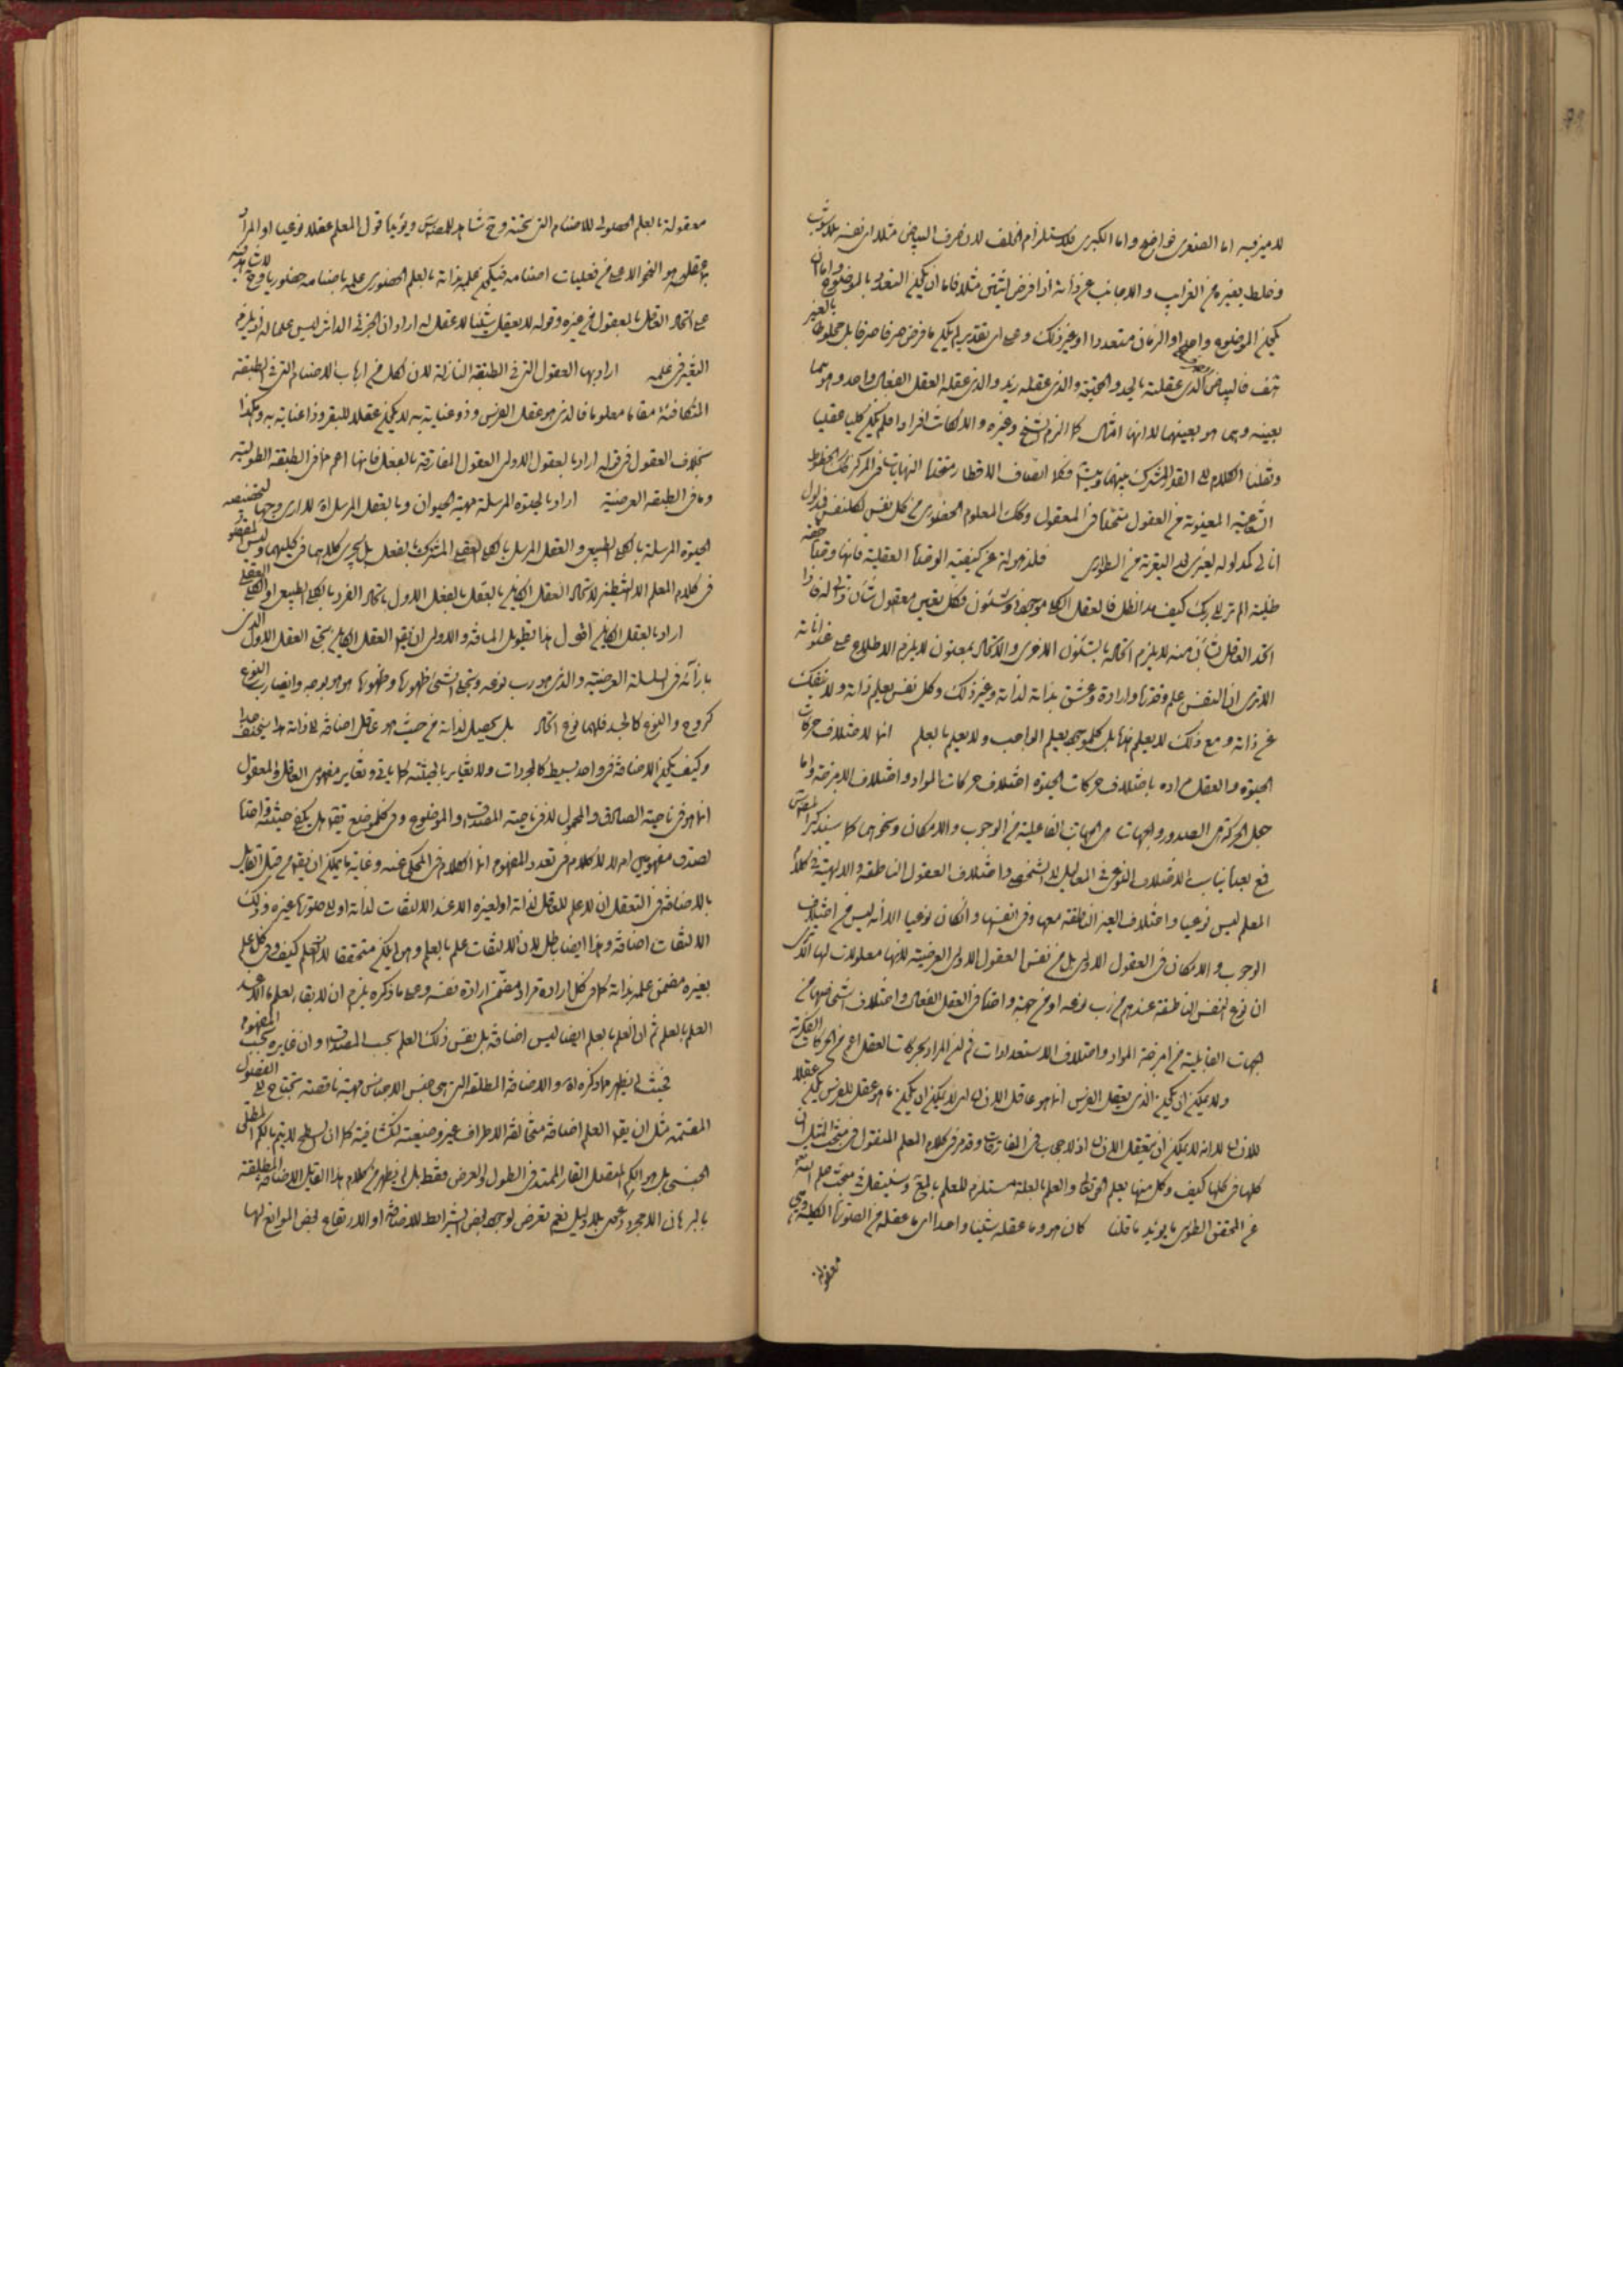 لا ميز فيه اما الصغرى فواضح واما الكبرى فلاستلزام الخلف لان صرف البياض مثلا اى نفسه بلا شوب
وخلط بغيره من الغرايب والاجانب عن ذاته اذا فرض اثنين مثلا فاما ان يكون التعدد بالموضوع واما ان
يكون الموضوع واحدا والزمان متعددا او غير ذلك وعلى اى تقدير لم يكن ما فرض صرفا صرفا بل مخلوطا بالغير
هف فالبياض الذى عقلته بالحد والحقيقة والذى عقله زيد والذى عقله العقل الفعال واحد وهو هما
بعينه وهما هو بعينهما لا انها امثال كما الزم الشيخ وغيره والا لكانت افرادا فلم يكن كليا عقليا
ونقلنا الكلام الى القدر المشترك بينهما
المعنوية من العقول متحققا فى المعقول وكذلك المعلوم الحضورى من كل نفس لكل نفس
انا لى كمدلوله ليعزى الى اليقربة من الطوارى فلذهوله عن كيفية الوحدة العقلية فانها وحدة حقة
ظلية الم تر الى ربك كيف مد الظل فالعقل الكلى موجود ذو شئون فكل نفس معقول شان ذاتى له فاذا
اتحد العاقل بشان منه لا يلزم اتحاده بالشئون الاخرى والاتحاد بمعنون لا يلزم الاطلاع على عنواناته
الا ترى ان النفس علم وقدرة وارادة وعشق بذاته لذاته وغير ذلك وكل نفس يعلم ذاته ولا ينفك
عن ذاته ومع ذلك لا يعلم هذا بل كل موجود يعلم الواجب ولا يعلم بالعلم انها لاختلاف حركات
الحيوة والعقل مراده باختلاف حركات الحيوة اختلاف حركات المواد واختلاف الامزجة واما
جعل الحركة هى الصدور والجهات هى الجهات الفاعلية من الوجوب والامكان ونحوهما كما سيذكر المص
فمع بعده يناسب الاختلاف النوعى فى المعاليل لا الشخصى واختلاف العقول الناطقة والالهية فى كلام
المعلم ليس نوعيا واختلاف الغير الناطقة معها وفى انفسها وان كان نوعيا الا انه ليس من اختلاف
الوجوب والامكان فى العقول الاولى بل من نفس العقول الاولى العرضية لانها معلولات لها الا ترى
ان نوع النفس الناطقة عندهم من رب نوعه او من جهة واحدة فى العقل الفعال واختلاف اشخاصها من
جهات القابلية من امزجة المواد واختلاف الاستعدادات ثم ان المراد بحركات العقل اعم من الحركات الفكرية
ولا يمكن ان يكون الذى يعقل الفرس انما هو عاقل الانسان اى لا يمكن ان يكون ما هو عقل للفرس يكون عقلا
للانسان لا انه لا يمكن ان يتعقل الانسان اذ لا حجاب فى المفارقات وقد مر فى كلام المعلم المنقول فى مبحث المثل ان
كلها فى كلها كيف وكل منها يعلم الحق تعالى والعلم بالعلة مستلزم للعلم بالمع وسينقل فى مبحث علم الله
عن المحقق الطوسى ما يؤيد ما قلنا كان هو وما عقله شيئا واحدا اى ما عقله من الصورة الكلية وهى
معقولة
معقولة بالعلم الحصولى للاصنام التى تحته وح شاهد للمص س ويؤيد ما قول المعلم عقلا نوعيا او المراد
بما عقله هو النحو الاعلى من فعليات اصنامه فيكون علمه بذاته بالعلم الحضورى علمه باصنامه حضوريا وح
على اتحاد العاقل بالمعقول فى غيره وقوله لا يعقل شيئا لا عقل له اراد ان الجزئى الداثر ليس علما له اذ يلزم
التغير فى علمه اراد بها العقول التى فى الطبقة النازلة لان الكلام فى ارباب الاصنام التى فى الطبقة
المتكافئة مقاما معلوما فالذى هو عقل الفرس وذو عناية به لا يكون عقلا للبقر وذا عناية به وهكذا
بخلاف العقول فى قوله اراد بالعقول الاولى العقول المفارقة بالفعل فانها اعم مما فى الطبقة الطولية
وما فى الطبقة العرضية اراد بالحيوة المرسلة مهية الحيوان وبالعقل المرسل اه لا ارى وجها لتخصيصه
الحيوة المرسلة بالكلى الطبيعى والعقل المرسل بالكلى العقلى المشترك بالفعل بل يجرى كلاهما فى كليهما وليس المقصود
فى كلام المعلم الا التنظير لاتحاد العقل الكاين بالعقل بالفعل الاول باتحاد الفرد بالكلى الطبيعى او الكلى العقلى
اراد بالعقل الكاين اقول هذا تطويل المسافة والاولى ان يقول العقل الكاين تحت العقل الاول الذى
بازائه فى السلسلة العرضية والذى هو رب نوعه وتجلى الشئ ظهوره وظهوره هو هو بوجه وايضا رب النوع
كروح والنوع كالجسد فلهما نوع اتحاد بل يحصل لذاته من حيث هو عاقل اضافة الى ذاته هذا سخيف جدا
وكيف يكون الاضافة فى واحد بسيط كالمجردات ولا تغاير بالحيثية كما ياتى وتغاير مفهومى العاقل والمعقول
انما هو فى ناحية الصادق والمحمول لا فى ناحية المصداق والموضوع وفى كل موضع يقول هل يكفى حيثية واحدة
لصدق مفهومين ام لا لا كلام فى تعدد المفهوم انما الكلام فى المحكى عنه وغاية ما يمكن ان يقول من قبل القايل
بالاضافة فى التعقل ان لا علم للعاقل لذاته او لغيره الا عند الالتفات لذاته او الى صورة غيره وذلك
الالتفات اضافة وهذا ايضا باطل لان الالتفات علم بالعلم وهو لم يكن متحققا لان العلم كيف وفى كل علم
بغيره مضمن علمه بذاته كما فى كل ارادة مراد مضمن ارادة نفسه وعلى ما ذكره يلزم ان لا بقاء لعلم ما الا عند
العلم بالعلم ثم ان العلم بالعلم ايضا ليس اضافة بل نفس ذلك العلم بحسب المصداق وان غايره بحسب المفهوم
بحيث لم يظهر مما ذكره اه والاضافة المطلقة التى هى جنس الاجناس مهية ناقصة تحتاج الى الفصول
المتممة مثل ان يقول العلم اضافة متخالفة الاطراف غير وضعية انكشافية كما ان السطح لا يتم بالكم المطلق
الجنسى بل هو الكم المتصل القار الممتد فى الطول والعرض فقط بل لم يظهر من كلام هذا القايل الاضافة المطلقة
بالبرهان الا مجرد دعوى بلا دليل نعم تعرض لوجود بعض الشرايط للاضافة او الارتفاع بعض الموانع لها